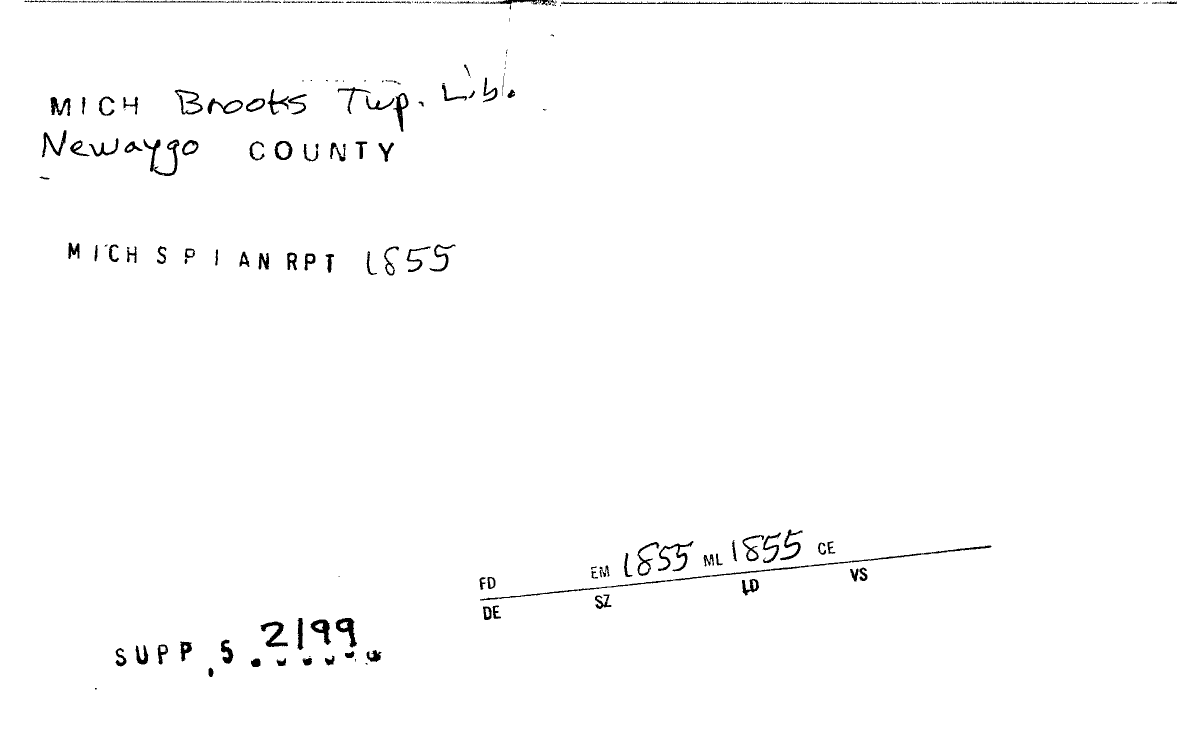 MICH Brooks Twp. Lib.
Newaygo COUNTY
MICH S P I AN RPT 1855
FD EM 1855 ML 1855 CE
DE SZ LD VS
SUPP, 5 2199